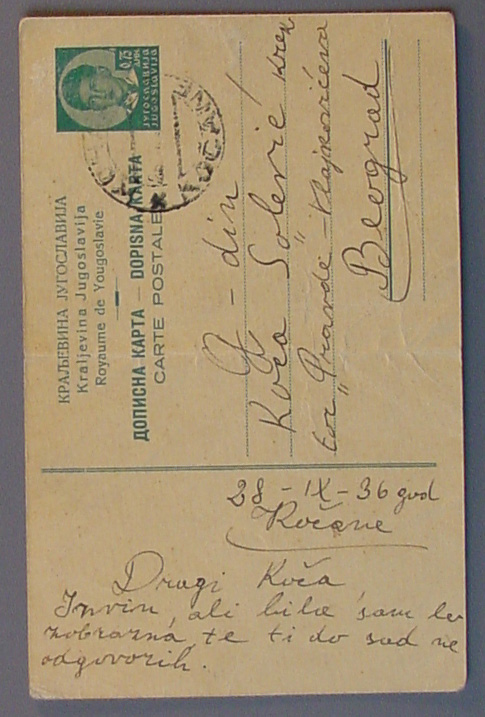 0,75
ДИН.
ЈУГОСЛАВИЈА
JUGOSLAVIJA
КРАЉЕВИНА ЈУГОСЛАВИЈА
Kraljevina Jugoslavija
Royaume de Yougoslavie
ДОПИСНА КАРТА — DOPISNA KARTA
CARTE POSTALE
G-din
Koča
"Pravde"
Beograd
28-IX-36 god
Kočane
Dragi Koča
ali bila sam
te ti do sad ne
odgovorih.